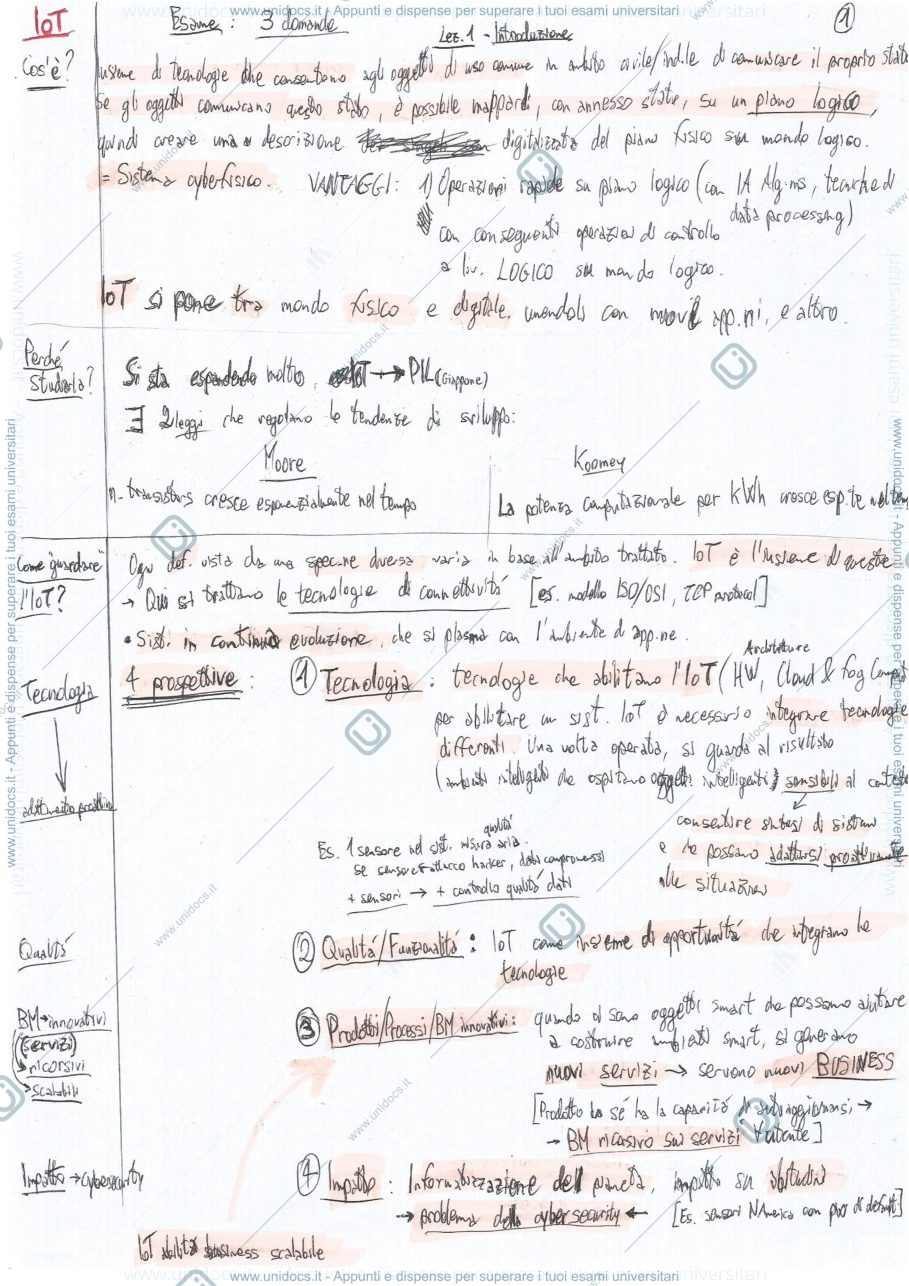 www.unidocs.it - Appunti e dispense per superare i tuoi esami universitari
IoT
Esame : 3 domande
Lez. 1 - Introduzione
1
Cos'è?
Insieme di tecnologie che consentono agli oggetti di uso comune in ambito civile/ind.le di comunicare il proprio stato
Se gli oggetti comunicano questo stato, è possibile mapparli, con annesso stato, su un piano logico,
quindi creare una descrizione digitalizzata del piano fisico sul mondo logico.
= Sistema cyberfisico. VANTAGGI: 1) Operazioni rapide su piano logico (con IA Alg.ms, tecniche di
data processing)
con conseguenti operazioni di controllo
a liv. LOGICO sul mondo logico.
IoT si pone tra mondo fisico e digitale, unendoli con nuovi app.ni, e altro.
Perché studiarla?
Si sta espandendo molto, IoT → PIL (Giappone)
∃ 2 leggi che regolano le tendenze di sviluppo:
Moore
Koomey
n- transistors cresce esponenzialmente nel tempo
La potenza computazionale per kWh cresce esp.te nel tem
Come "guardare" l'IoT?
Ogni def. vista da una spec.ne diversa varia in base all'ambito trattato. IoT è l'insieme di queste
→ Qui si trattano le tecnologie di connettività [es. modello ISO/OSI, TCP protocol]
• Sist. in continua evoluzione, che si plasma con l'ambiente di app.ne.
Tecnologia
4 prospettive :
1 Tecnologia : tecnologie che abilitano l'IoT (HW, Cloud & Fog Comput
Architetture
per abilitare un sist. IoT è necessario integrare tecnologie
differenti. Una volta operata, si guarda al risultato
(ambienti intelligenti che ospitano oggetti intelligenti) sensibili al contes
adattamento proattivo
consentire sintesi di sistemi
e che possano adattarsi proattivamente
alle situazioni
Es. 1 sensore nel sist. misura qualità aria.
se sensore attacco hacker, dati compromessi
+ sensori → + controllo qualità dati
Qualità
2 Qualità/Funzionalità : IoT come insieme di opportunità che integrano le
tecnologie
BM → innovativi
(servizi)
→ ricorsivi
→ scalabili
3 Prodotti/Processi/BM innovativi : quando ci sono oggetti smart che possono aiutare
a costruire ambienti smart, si generano
nuovi servizi → servono nuovi BUSINESS
[Prodotto in sé ha la capacità di autoaggiornarsi, →
→ BM ricorsivo sui servizi utente]
Impatto → cybersecurity
4 Impatto : Informatizzazione del pianeta, impatto su abitudini
→ problema della cyber security ← [Es. sensori NAmerica con pw di default]
IoT abilita business scalabile
www.unidocs.it - Appunti e dispense per superare i tuoi esami universitari